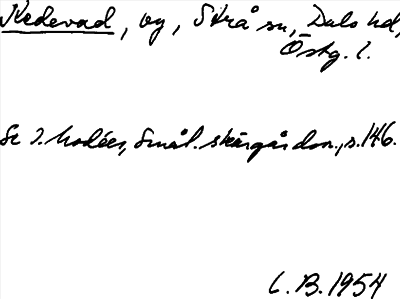 Kedevad, by, Strå sn, Dals hd,
Östg. l.
Se I. Modéer, Smål. skärgården, s. 146.
C. B. 1954